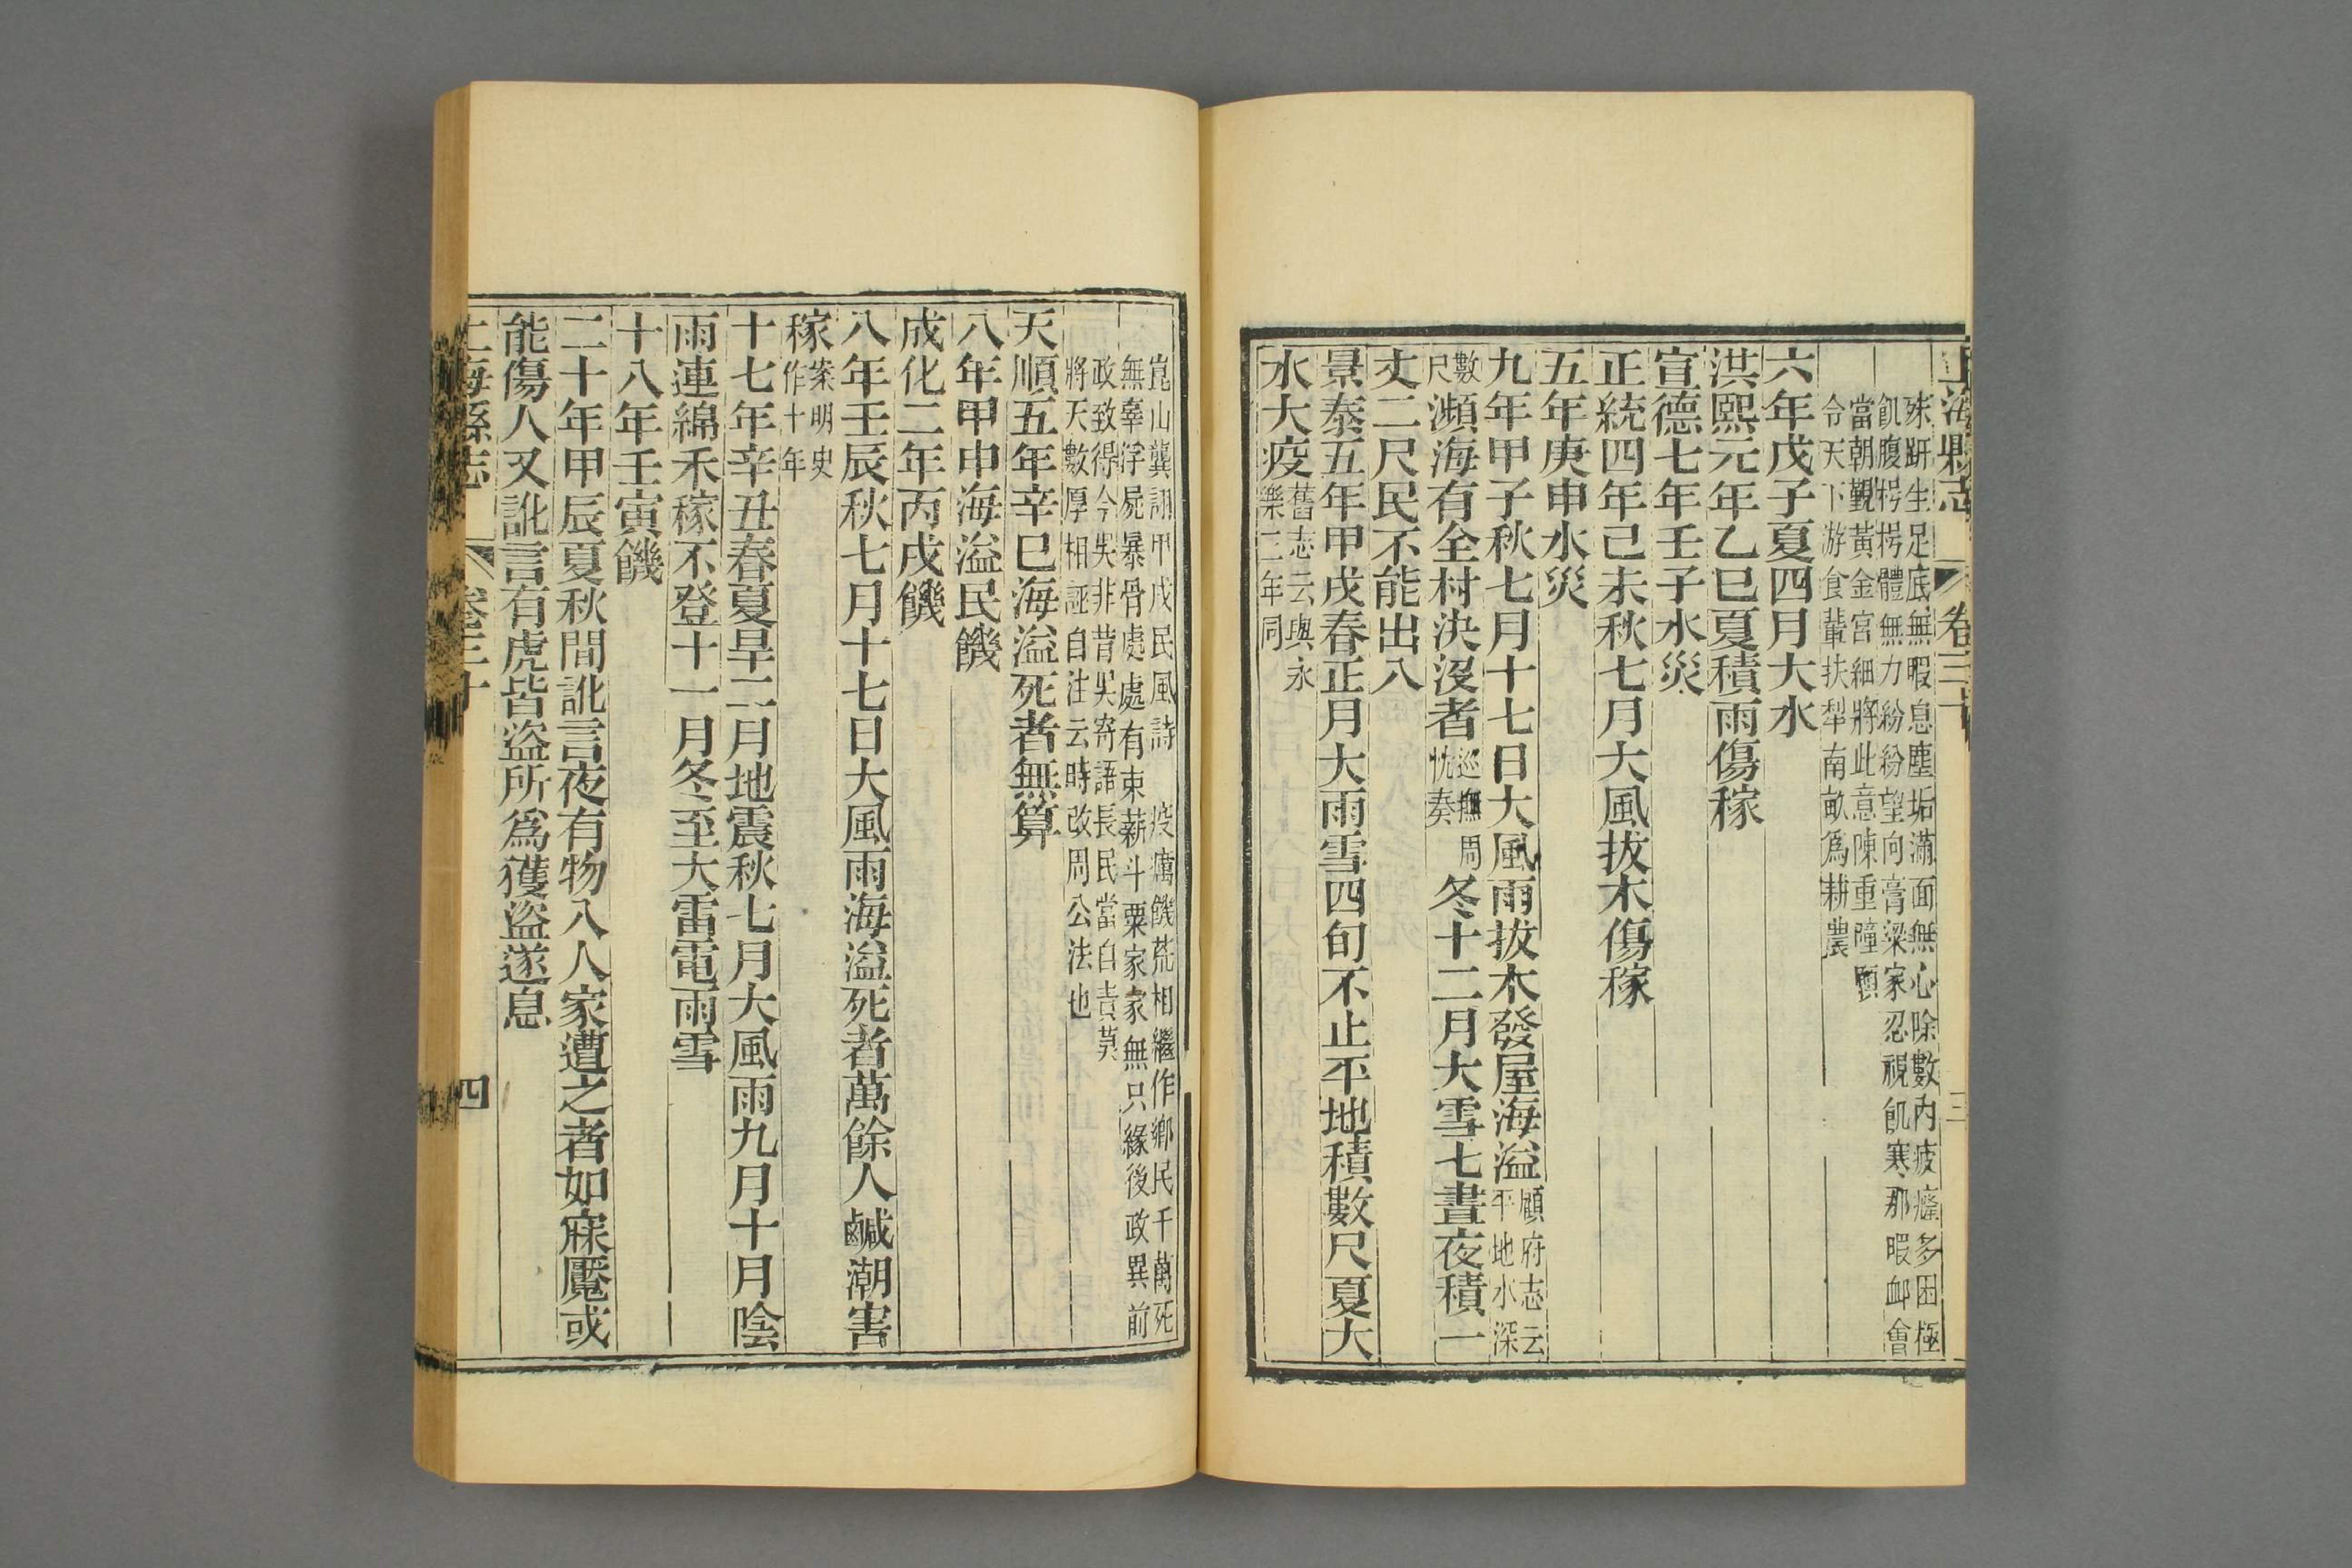 上海縣志 卷三十 三
殊趼生足底無暇息塵垢滿面無心除數內疲癃多困極
飢腹枵枵體無力紛紛望向膏粱家忍視飢寒那暇卹會
當朝覲黃金宮細將此意陳重瞳願
令天下游食輩扶犁南畝爲耕農
六年戊子夏四月大水
洪熙元年乙巳夏積雨傷稼
宣德七年壬子水災
正統四年己未秋七月大風拔木傷稼
五年庚申水災
九年甲子秋七月十七日大風雨拔木發屋海溢顧府志云平地水深
數尺瀕海有全村決沒者巡撫周忱奏冬十二月大雪七晝夜積一
丈二尺民不能出入
景泰五年甲戌春正月大雨雪四旬不止平地積數尺夏大
水大疫舊志云與永樂二年同
崑山龔詡甲戌民風詩 疫癘饑荒相繼作鄉民千萬死
無辜浮屍暴骨處處有束薪斗粟家家無只緣後政異前
政致得今吳非昔吳寄語長民當自責莫
將天數厚相誣自注云時改周公法也
天順五年辛巳海溢死者無算
八年甲申海溢民饑
成化二年丙戌饑
八年壬辰秋七月十七日大風雨海溢死者萬餘人鹹潮害
稼案明史作十年
十七年辛丑春夏旱二月地震秋七月大風雨九月十月陰
雨連綿禾稼不登十一月冬至大雷電雨雪
十八年壬寅饑
二十年甲辰夏秋間訛言夜有物入人家遭之者如寐魘或
能傷人又訛言有虎皆盜所爲獲盜遂息
上海縣志 卷三十 四